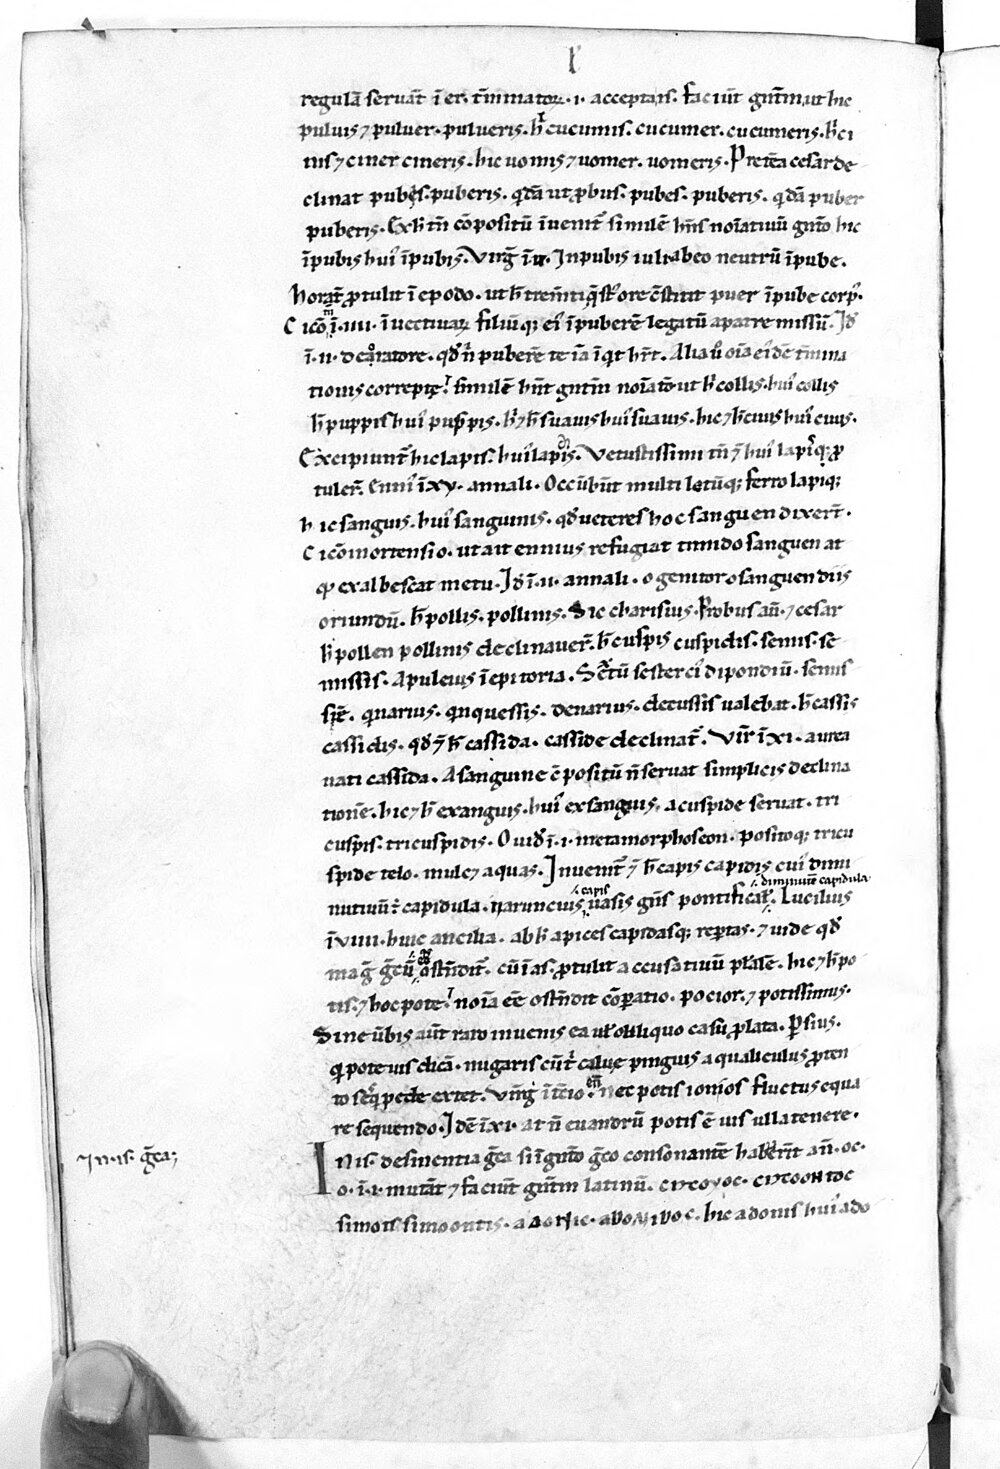 regulā seruāt ī er. t̄minatoꝝ .i. accepta is. faciūt gn̄tm̄ ut hic
puluis ⁊ puluer. pulueris. h̓ cucumis. cucumer. cucumeris. h̓ ci
nis ⁊ ciner cineris. hic uomis ⁊ uomer. uomeris. Pret̄ea cesar de
clinat pubes. puberis. qdā ut ꝓbus. pubes. puberis. qdā puber
puberis. Ex h̓ tn̄ cōpositū īuenit̄ similē hn̄s noīatiuū gn̄to hic
īpubis hui᾽ īpubis. Virḡ ī u. Inpubis iuli abeo neutrū īpube.
Horat̄ ꝓtulit ī epodo. ut h̓ trem̄ti q̄st᾽ ore c̄stitit puer īpube corp᾽.
Cicō ī .iiii. īuectiuaꝝ filiūq; ei᾽ īpuberē legatū apatre missū. Id̄
ī .ii. de oratore. qd̄ n̄ puberē te iā īqt hr̄t. Alia u᾽ oīa ei᾽dē t̄mina
tionis correptę similē hn̄t gn̄tm̄ noīatō ut h̓ collis. hui᾽ collis
h̓ puppis hui᾽ puppis. h̓ ⁊ h̓ suauis hui᾽ suauis. hic ⁊ h̓ ciuis hui᾽ ciuis.
Excipiunt̄ hic lapis. hui᾽ lapidis. Vetustissimi tn̄ ⁊ hui᾽ lapis q; ꝓ
tuler̄. Enni᾽ ī xv. annali. Occūbūt multi letūq; ferro lapiq;
hic sanguis. hui᾽ sanguinis. qd̄ ueteres hoc sanguen dixer̄t.
Cicō in ortensio. ut ait ennius refugiat timido sanguen at
q; exalbescat metu. Id̄ ī .ii. annali. o genitor o sanguen diis
oriundū. h̓ pollis. pollinis. Sic charisius. Probus aū. ⁊ cesar
h̓ pollen pollinis declinauer̄. h̓ cuspis cuspidis. semis. se
missis. Apuleius ī epitoria. Sed tū sesterci᾽ dipondiū. semis
sē. qnarius. qnquessis. denarius. decussis ualebat. h̓ cassis
cassidis. qd̄ ⁊ h̓ cassida. casside declinat̄. Vir̄ ī xi. aurea
uati cassida. A sanguine c̄positū n̄ seruat simplicis declina
tionē. hic ⁊ h̓ exanguis. hui᾽ exsanguis. a cuspide seruat. tri
cuspis. tricuspidis. Ouid̄ ī .i. metamorphoseon. positoq; tricu
spide telo. mulcꝫ aquas. Inuenit̄ ⁊ h̓ capis capidis cui᾽ dimi
nutiuū ē capidula. naruncuis .i. capis uasis gn̄s pontifical̄. .i. diminutē capidula Lucilius
ī uiiii. huic ancilia. ab h̓ apices capidasq; reptas. ⁊ uide qd̄
mag̅ g̅cū ostn̄dit̄. cū ī as. ꝓtulit accusatiuū plalē. hic ⁊ h̓ po
tis. ⁊ hoc pote. noīa eē ostn̄dit cōparatio. pocior. ⁊ potissimus.
Sine ūbis aūt raro inuenis ea ul̓ obliquo casu ꝓlata. Persius.
q pote uis dicā. nugaris cū t̄ calue pinguis aqualiculus ꝓten
to seq̓pede extet. Virg̅ ī t̄cio. Nec potis ionios fluctus equa
re sequendo. Idē ī xi. at n̄ euandrū potis ē uis ulla tenere.
In is g̅ca;
In is. desinentia g̅ca si ī gn̄to g̅co consonantē habuer̄t an̄ .oc.
o. ī .i. mutāt ⁊ faciūt gn̄tm̄ latinū. cιμοιc. cιμοεντοc
simois simoentis. αδωνιc. αδωνιδοc. hic adonis hui᾽ ado